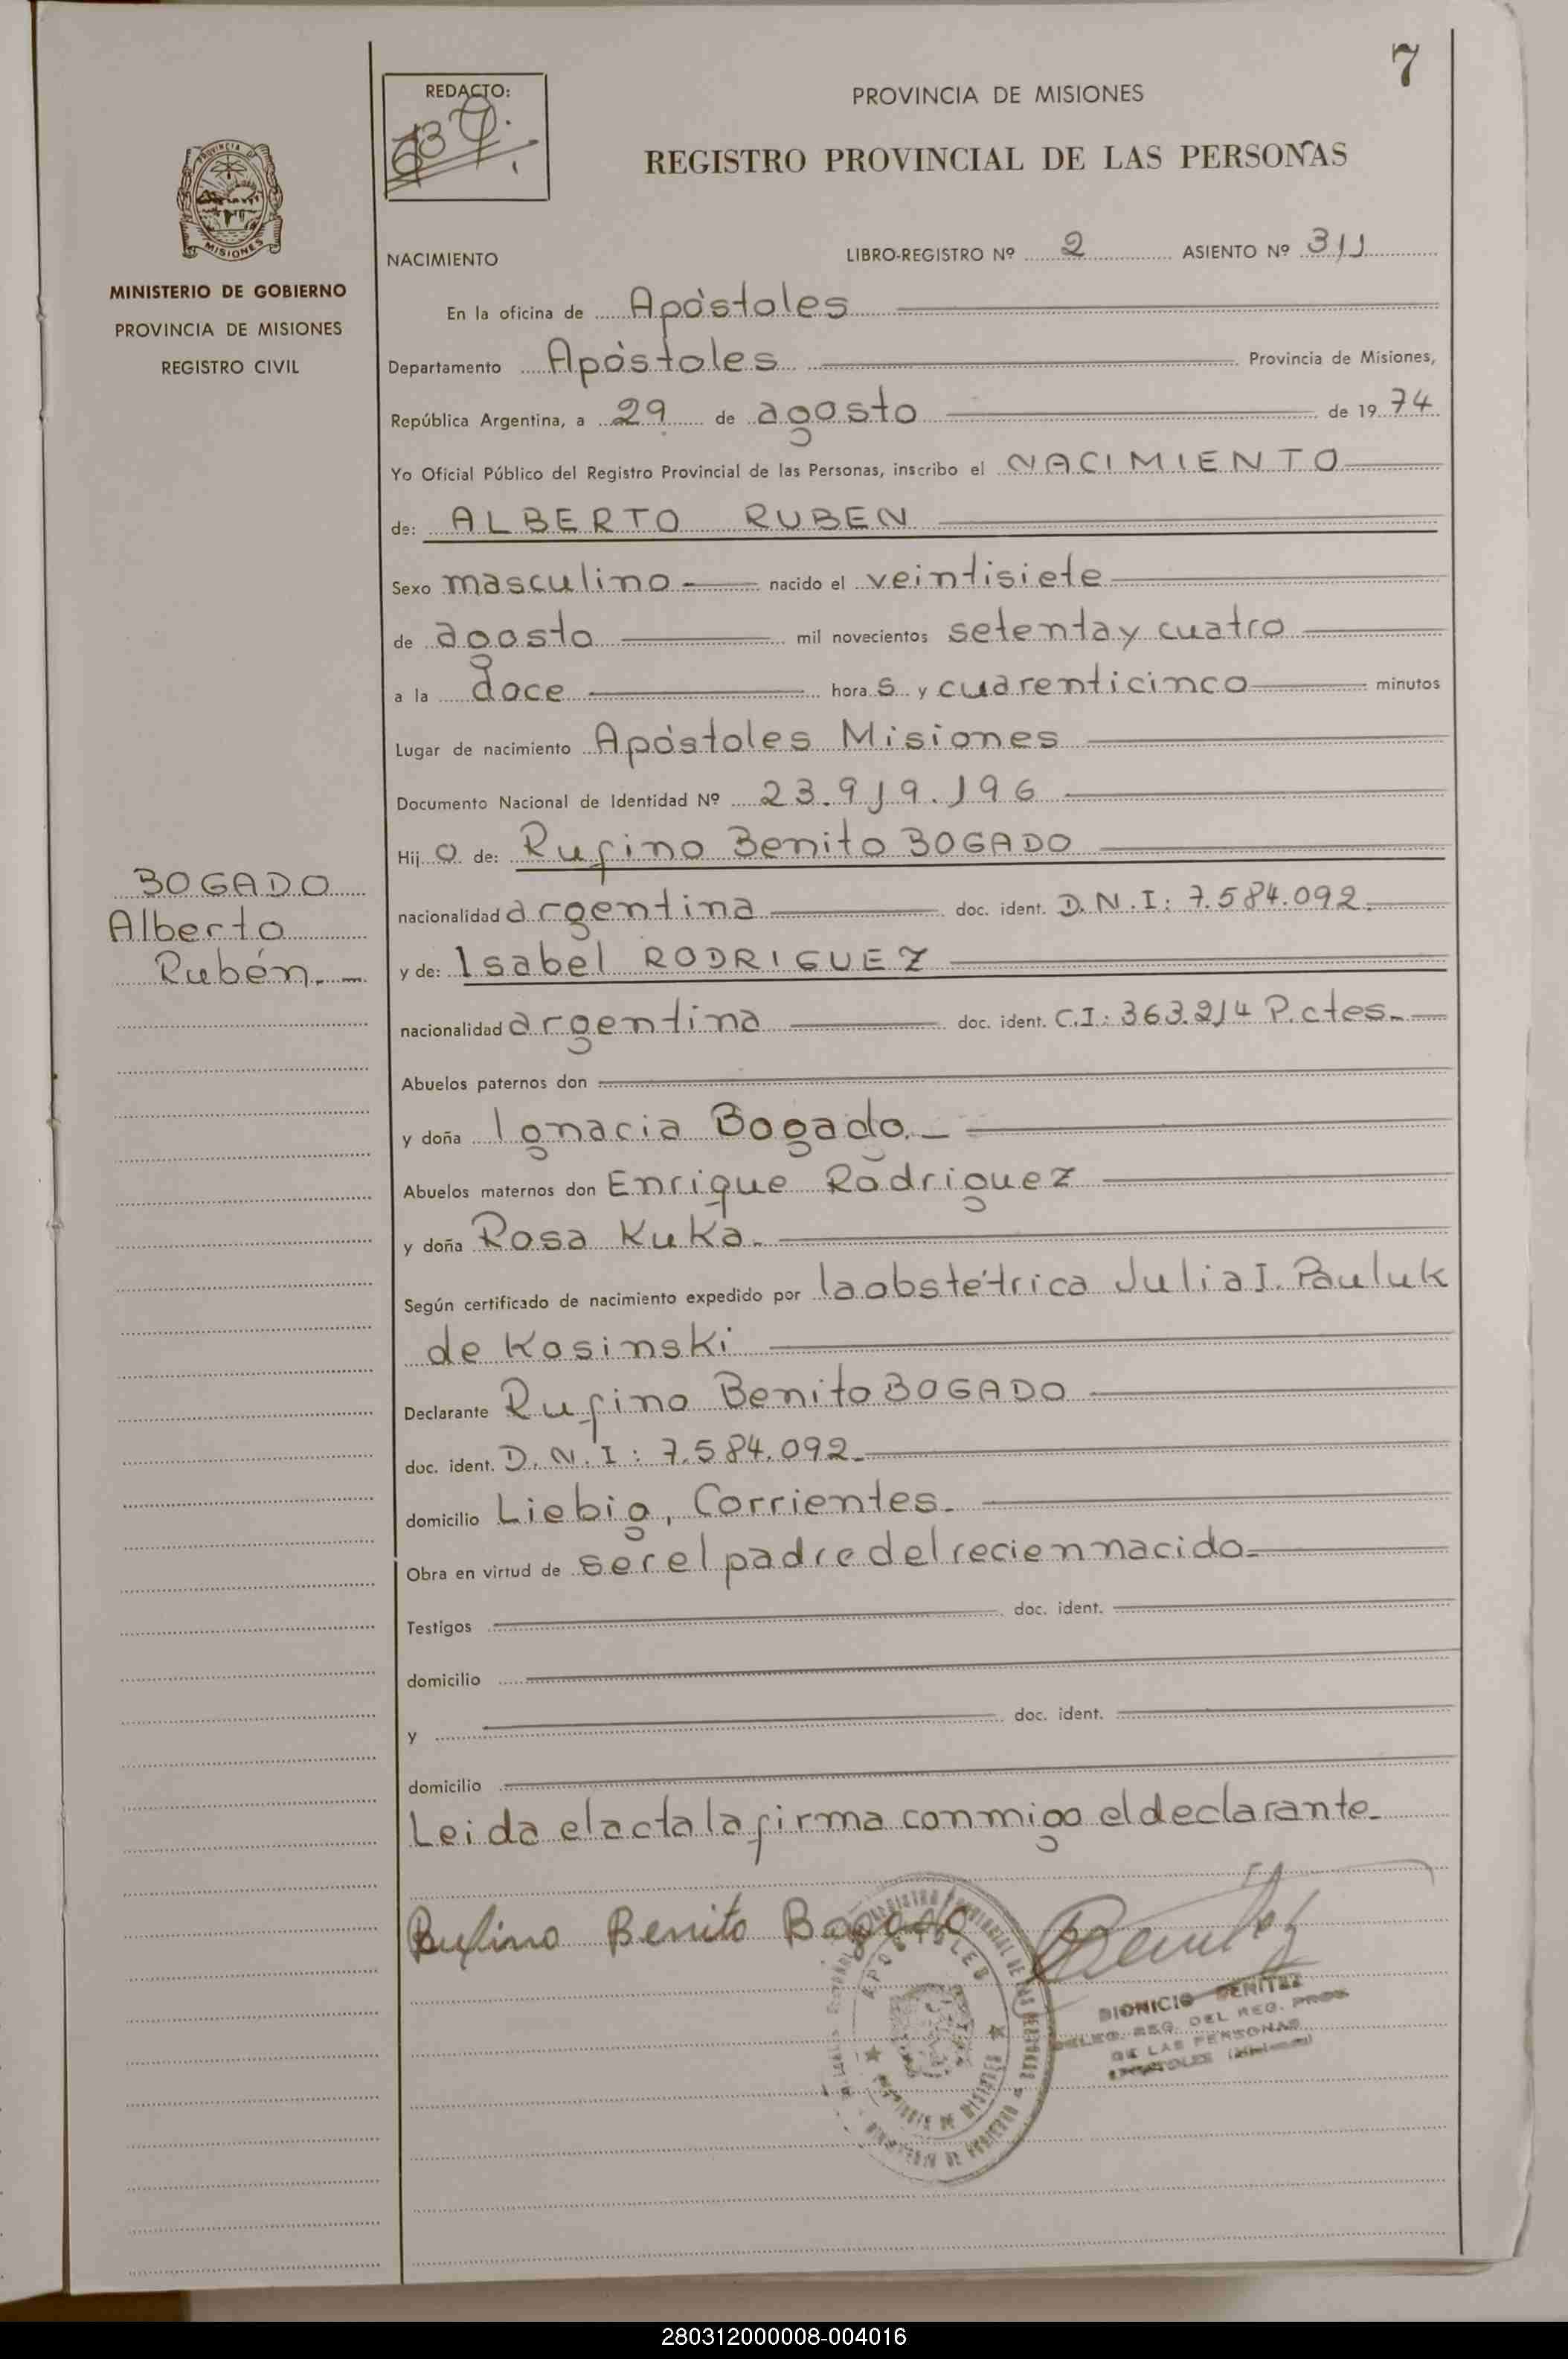 7
REDACTO:
PROVINCIA DE MISIONES
REGISTRO PROVINCIAL DE LAS PERSONAS
PROVINCIA DE
MISIONES
MINISTERIO DE GOBIERNO
PROVINCIA DE MISIONES
REGISTRO CIVIL
NACIMIENTO LIBRO-REGISTRO Nº 2 ASIENTO Nº 311
En la oficina de Apóstoles
Departamento Apóstoles Provincia de Misiones,
República Argentina, a 29 de agosto de 1974
Yo Oficial Público del Registro Provincial de las Personas, inscribo el NACIMIENTO
de: ALBERTO RUBEN
Sexo masculino nacido el veintisiete
de agosto mil novecientos setenta y cuatro
a la doce hora s y cuarenticinco minutos
Lugar de nacimiento Apóstoles Misiones
Documento Nacional de Identidad Nº 23.919.196
Hij o de: Rufino Benito BOGADO
BOGADO
Alberto
Rubén.—
nacionalidad argentina doc. ident. D.N.I: 7.584.092.
y de: Isabel RODRIGUEZ
nacionalidad argentina doc. ident. C.I: 363.214 P. ctes.
Abuelos paternos don
y doña Ignacia Bogado.
Abuelos maternos don Enrique Rodriguez
y doña Rosa Kuka.
Según certificado de nacimiento expedido por la obstétrica Julia I. Pauluk
de Kosinski
Declarante Rufino Benito BOGADO
doc. ident. D.N.I: 7.584.092.
domicilio Liebig, Corrientes.
Obra en virtud de ser el padre del recien nacido.
Testigos doc. ident.
domicilio
y doc. ident.
domicilio
Leida el acta la firma conmigo el declarante.
Rufino Benito Bogado
Benitez
DIONICIO BENITEZ
DELEG. REG. DEL REG. PROV.
DE LAS PERSONAS
APOSTOLES (Misiones)
280312000008-004016